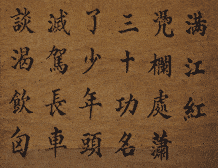 滿江紅
凴欄處蕭
三十功名
了少年頭
滅駕長車
談渴飲匈